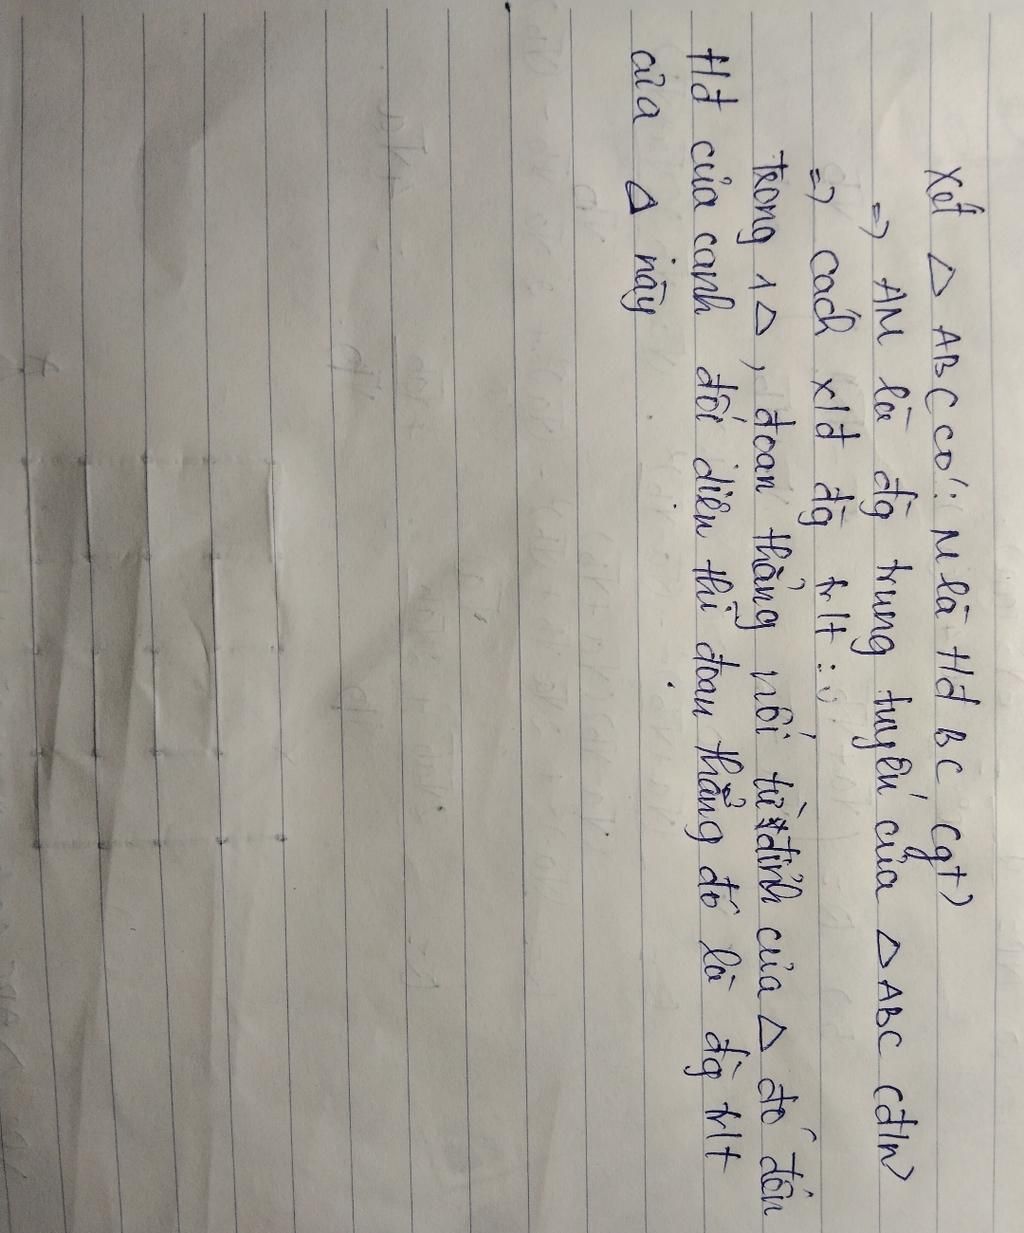 Xét △ ABC có: M là tđ BC (gt)
=> AM là đg trung tuyến của △ ABC (đ/n)
=> cách x/đ đg tr/t :
trong 1 △, đoạn thẳng nối từ 1 đỉnh của △ đó đến
tđ của cạnh đối diện thì đoạn thẳng đó là đg tr/t
của △ này